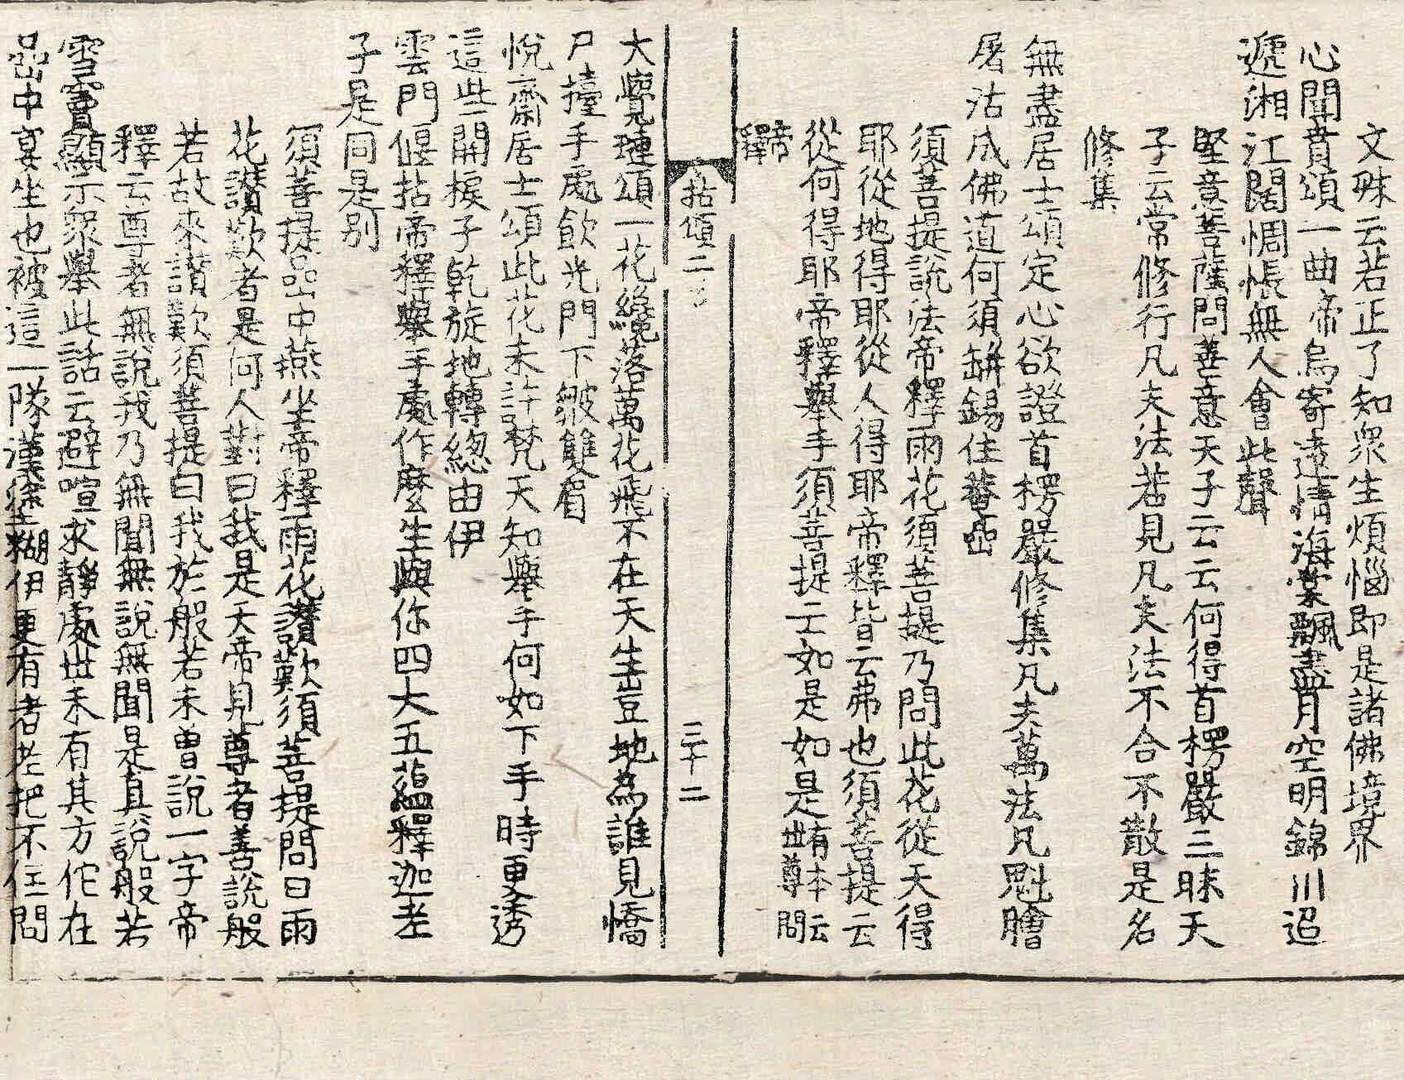 文殊云若正了知衆生煩惱即是諸佛境界
心聞賁頌一曲帝烏寄遠情海棠飄盡月空明錦川迢
遞湘江闊惆悵無人會此聲
堅意菩薩問善意天子云云何得首楞嚴三昧天
子云常修行凡夫法若見凡夫法不合不散是名
修集
無盡居士頌定心欲證首楞嚴修集凡夫萬法凡魁膾
屠沽成佛道何須缾錫住菴嵓
須菩提說法帝釋雨花須菩提乃問此花從天得
耶從地得耶從人得耶帝釋皆云弗也須菩提云
從何得耶帝釋舉手須菩提云如是如是有本云世尊問
帝釋
拈頌二 三十二
大覺璉頌一花纔落萬花飛不在天生豈地爲誰見憍
尸擡手處飮光門下皺雙眉
悅齋居士頌此花未許梵天知舉手何如下手時更透
這些開棙子乾旋地轉緫由伊
雲門偃拈帝釋舉手處作麽生與你四大五蘊釋迦老
子是同是別
須菩提嵓中燕坐帝釋雨花讃歎須菩提問曰雨
花讃歎者是何人對曰我是天帝見尊者善說般
若故來讃歎須菩提曰我於般若未曾說一字帝
釋云尊者無說我乃無聞無說無聞是真說般若
雪竇顯示衆舉此話云避喧求靜處世未有其方佗在
嵓中宴坐也被這一隊漢塗糊伊更有者老把不住問